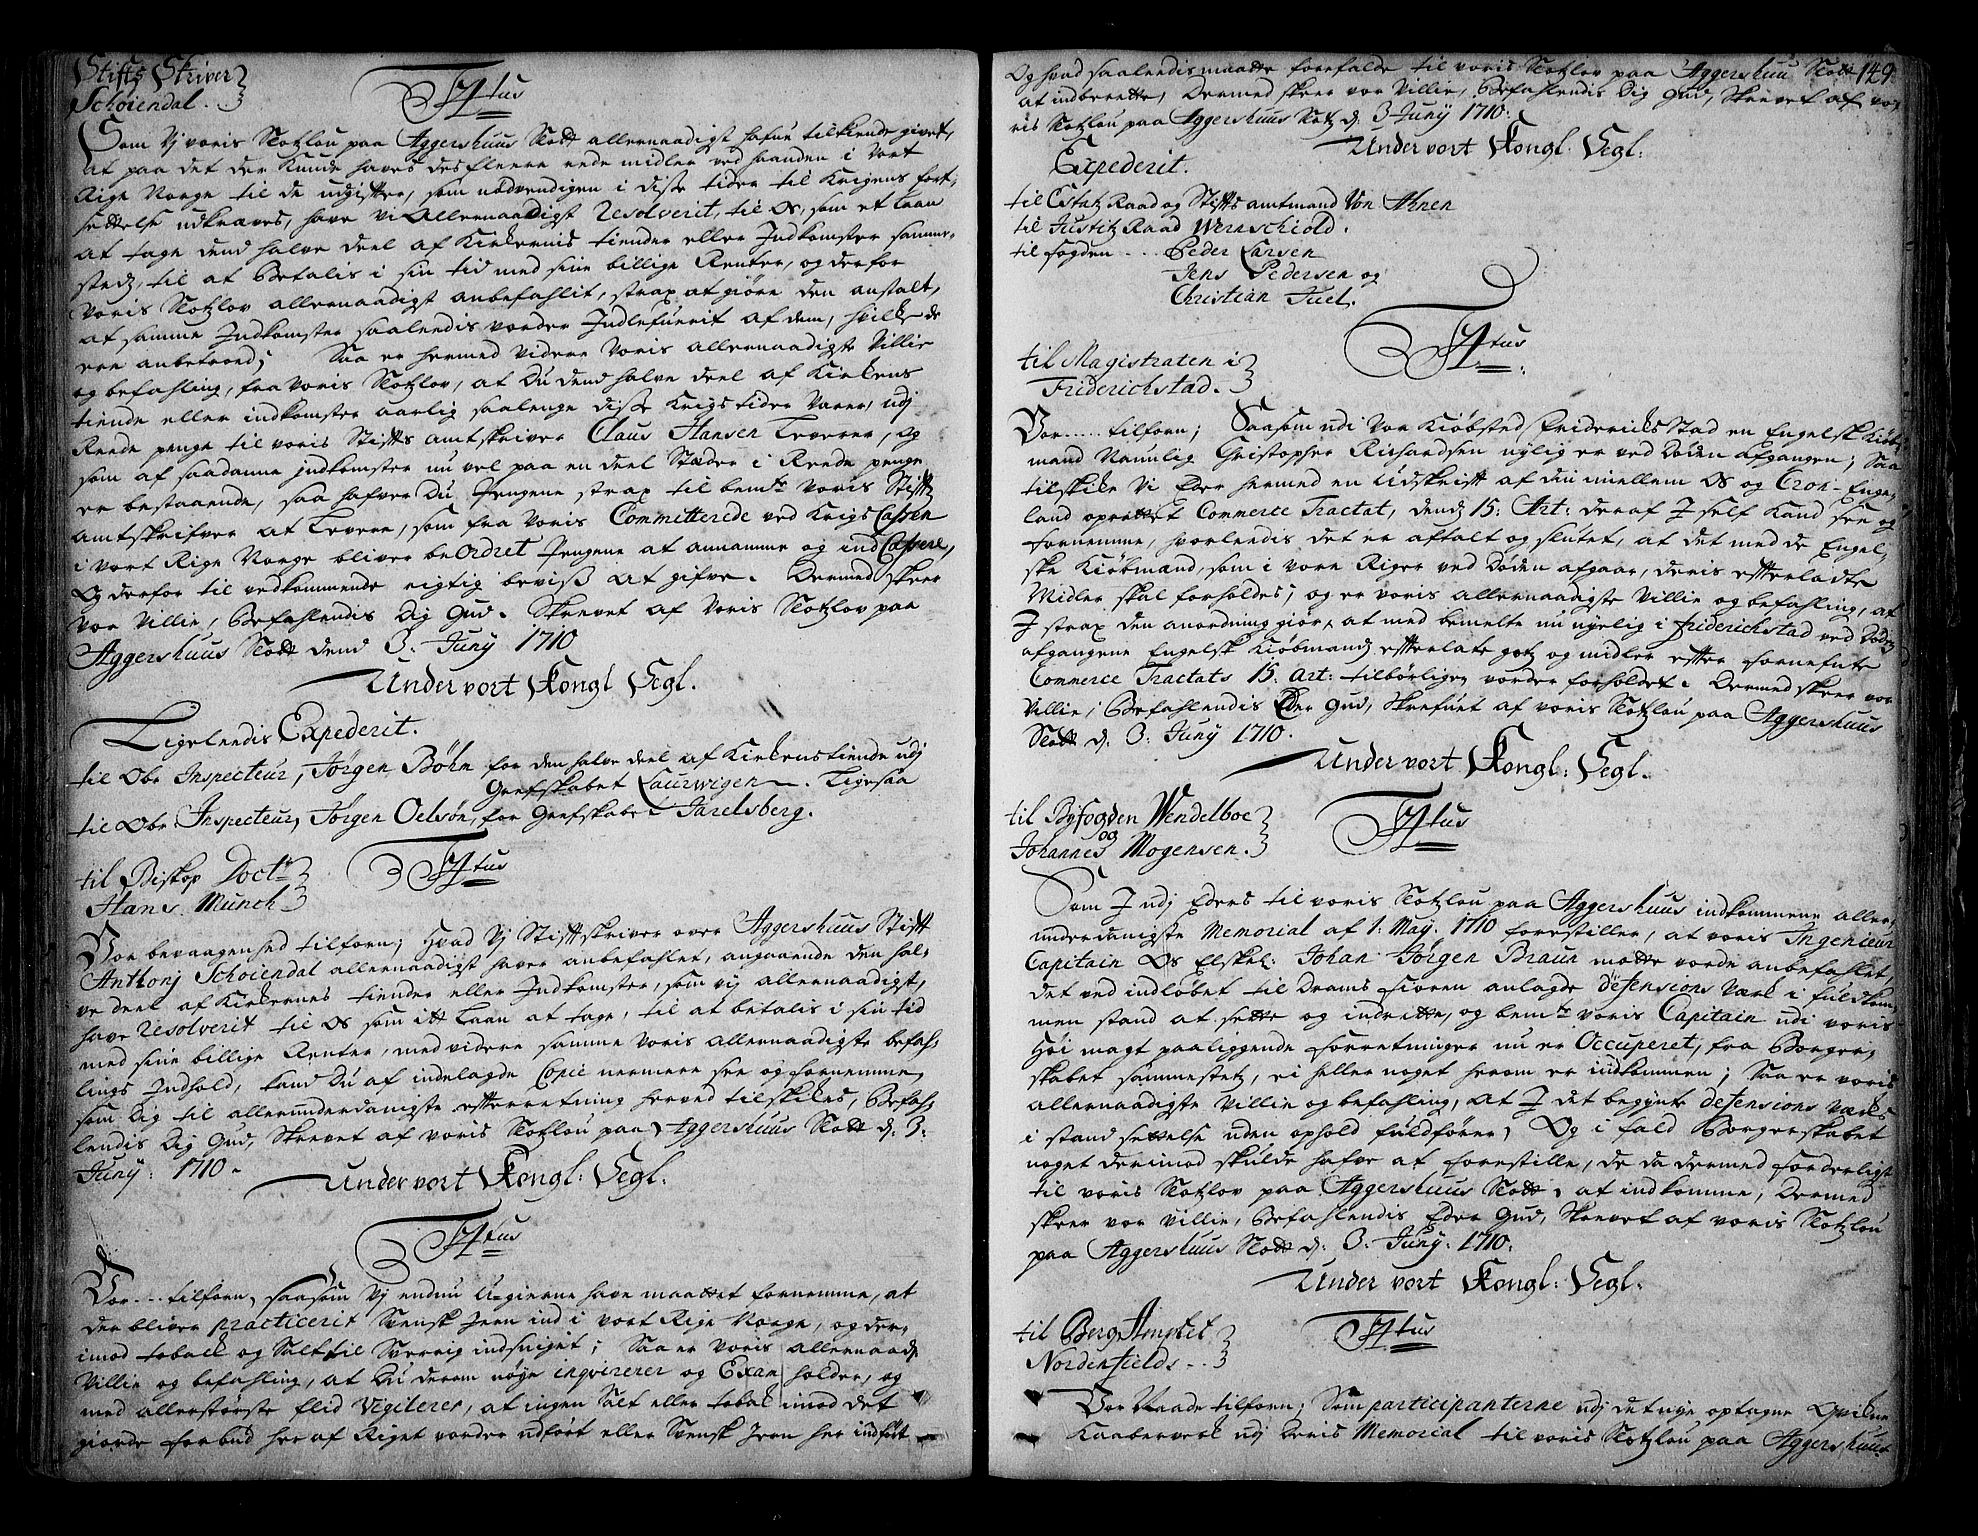 Stifts Skriver
Schöiendal.
Titus
Som Vj voris Slotzlou paa Aggershuus Slott allernaadigst hafue tilkiende givet,
at paa det der Kunde haves des fleere rede midler ved haanden i Vort
Rige Norge til de udgifter, som nödvendigen i disse tider til Krigens fort,
settelse udkræves, have Vi Allernaadigst resolverit, til Os, som et Laan
at tage dend halve deel af Kirkernis tiender eller Indkomster samme,
stedz, til at Betalis i sin tid med sine billige Renter, og derfor
Voris Slotzlov allernaadigst anbefahlit, strax at giöre den anstalt,
at samme Indkomster saaledis vorder Indlefuerit af dem, hvilke de
ere anbetroed; Saa er hermed videre Voris allernaadigste Villie
og befahling, fra Voris Slotzlov, at Du dend halve deel af Kirkens
tiende eller indkomster aarlig saalenge disse Krigs tider Varer, udj
Reede penge til voris Stiftsamtskriver Claus Hansen Leverer, og
som af saadanne indkomster nu vel paa en deel Stæder i Reede penge
er bestaaende, saa hafver Du Pengene strax til bemte Voris Stiftz
amtskrifver at Levere, som fra Voris Committerede ved KrigsCassen
i vort Rige Norge bliver beordret Pengene at annamme og indCassere,
Og derfor til vedkommende rigtig beviss at gifve. Dermed skeer
vor Villie, Befahlendis Dig Gud. Skrevet af Voris Slotzlov paa
Aggershuus Slott dend 3. Juny 1710
Under vort Kongl Segl.
Ligeledis Expederit.
til Obr Inspecteur, Jörgen Böhn for den halve deel af Kirkens tiende udj
Grefskabet Laurwigen. Ligesaa
til Obr Inspecteur, Jörgen Oelsön, for Grefskabet Jarelsberg.
til Biskop Doctr
Hans Munch
Titus
Vor bevaagenhed tilforn; Hvad Vj Stiftskriver over Aggershuus Stift
Anthonj Schöiendal allernaadigst haver anbefahlet, angaaende den hal,
ve deel af Kirkernes tiender eller Indkomster, som vj allernaadigst
have resolverit til Os som itt Laan at tage, til at betalis i sin tid
med sine billige Renter, med videre samme Voris allernaadigste befah,
lings Indhold, kand Du af indelagde Copie nermere see og fornemme,
som Dig til allerunderdanigste efterretning herved tilskikes, Befah,
lendis Dig Gud, Skrevet af voris Slotzlou paa Aggershuus Slott d. 3.
Juny: 1710.
Under vort Kongl: Segl.
Titus
Vor ... tilforn, saasom Vj endnu Ugierne have maattet fornemme, at
der bliver practicerit Svensk Jern ind i vort Rige Norge, og der,
imod toback og Salt til Sverrig indsniget; Saa er Voris allernaadz
Villie og befahling, at Du derom nöye inqvirerer og Exam holder, og
med allerstörste flid Vigilerer, at ingen Salt eller tobak imod det
giorde forbud her af Riget vorder udfört eller Svensk Jern her indfört
149.
Og hvad saaledis maatte forefalde til voris Slotzlov paa Aggershuus Slott
at indberette, Dermed skeer vor Villie, Befahlendis Dig Gud, Skrevet af vo,
ris Slotzlou paa Aggershuus Slot d. 3 Juny 1710.
Under vort Kongl. Segl:
Expederit.
til Etatz Raad og Stifts amtmand Von Ahnen
til Justitz Raad Wernschiold.
til fogden ... Peder Larsen
Jens Pedersen og
Christian Juel.
til Magistraten i
Friderichstad.
Titus
Vor .... tilforn; Saasom udi Vor Kiöbsted FridericksStad en Engelsk Kiöb,
mand Namnlig Christopher Richardsen nylig er ved Döden afgangen; Saa
tilskike Vi Eder hermed en Udskrift af din imellem Os og Cron-Enge,
land oprettet Commerce Tractat, dends 15: Art: deraf I self kand see og
fornemme, hvorledis det er aftalt og slutet, at det med de Engel,
ske Kiöbmænd, som i vore Riger ved Döden afgaar, deris efterladte
Midler skal forholdes; og er voris allernaadigste Villie og befahling, at
I strax den anordning giör, at med bemelte nu nyelig i friderichstad ved Döden
afgangene Engelsk Kiöbmandz efterlate gotz og midler efter fornefnte
Commerce Tractats 15. Art: tilbörligen vorder forholdet. Dermed skeer vor
Villie, Befahlendis Eder Gud, Skrefuet af voris Slotzlou paa Aggershuus
Slott d. 3. Juny 1710.
Under vort Kongl: Segl.
til Byfogden Wendelboe
og
Johannes Mogensen.
Titus
Som I udj Eders til voris Slotzlou paa Aggershuus indkommene aller,
underdanigste Memorial af 1. May. 1710 forestiller, at voris Ingenieur
Capitain Os Elskel: Johan Jörgen Braun motte vorde anbefahlet,
det ved indlöbet til Drams fioren anlagde defensions Værk i fuldkom,
men stand at sette og indrette, og bemte voris Capitain udi voris
Höi magt paaliggende forretninger nu er Occuperet, fra Borger,
skabet sammestetz, ei heller noget herom er indkommen; Saa er voris
allernaadigste Villie og befahling, at I det begynte defensions værk
i stand settelse uden ophold fuldförer, Og i fald Borgerskabet
noget derimod skulde hafve at forestille, de da dermed forderligst
til voris Slotzlov paa Aggershuus Slott, at indkomme, Dermed
skeer vor Villie, Befahlendis Eder Gud, Skrevet af voris Slotzlou
paa Aggershuus Slott d: 3. Juny. 1710.
Under vort Kongl: Segl.
til Berg Amptet
Nordenfields.
Titus
Vor Naade tilforn; Som participanterne udj det nye optagne Qvikne
Kaaberverk udj Deris Memorial til voris Slotzlou paa Aggershuus